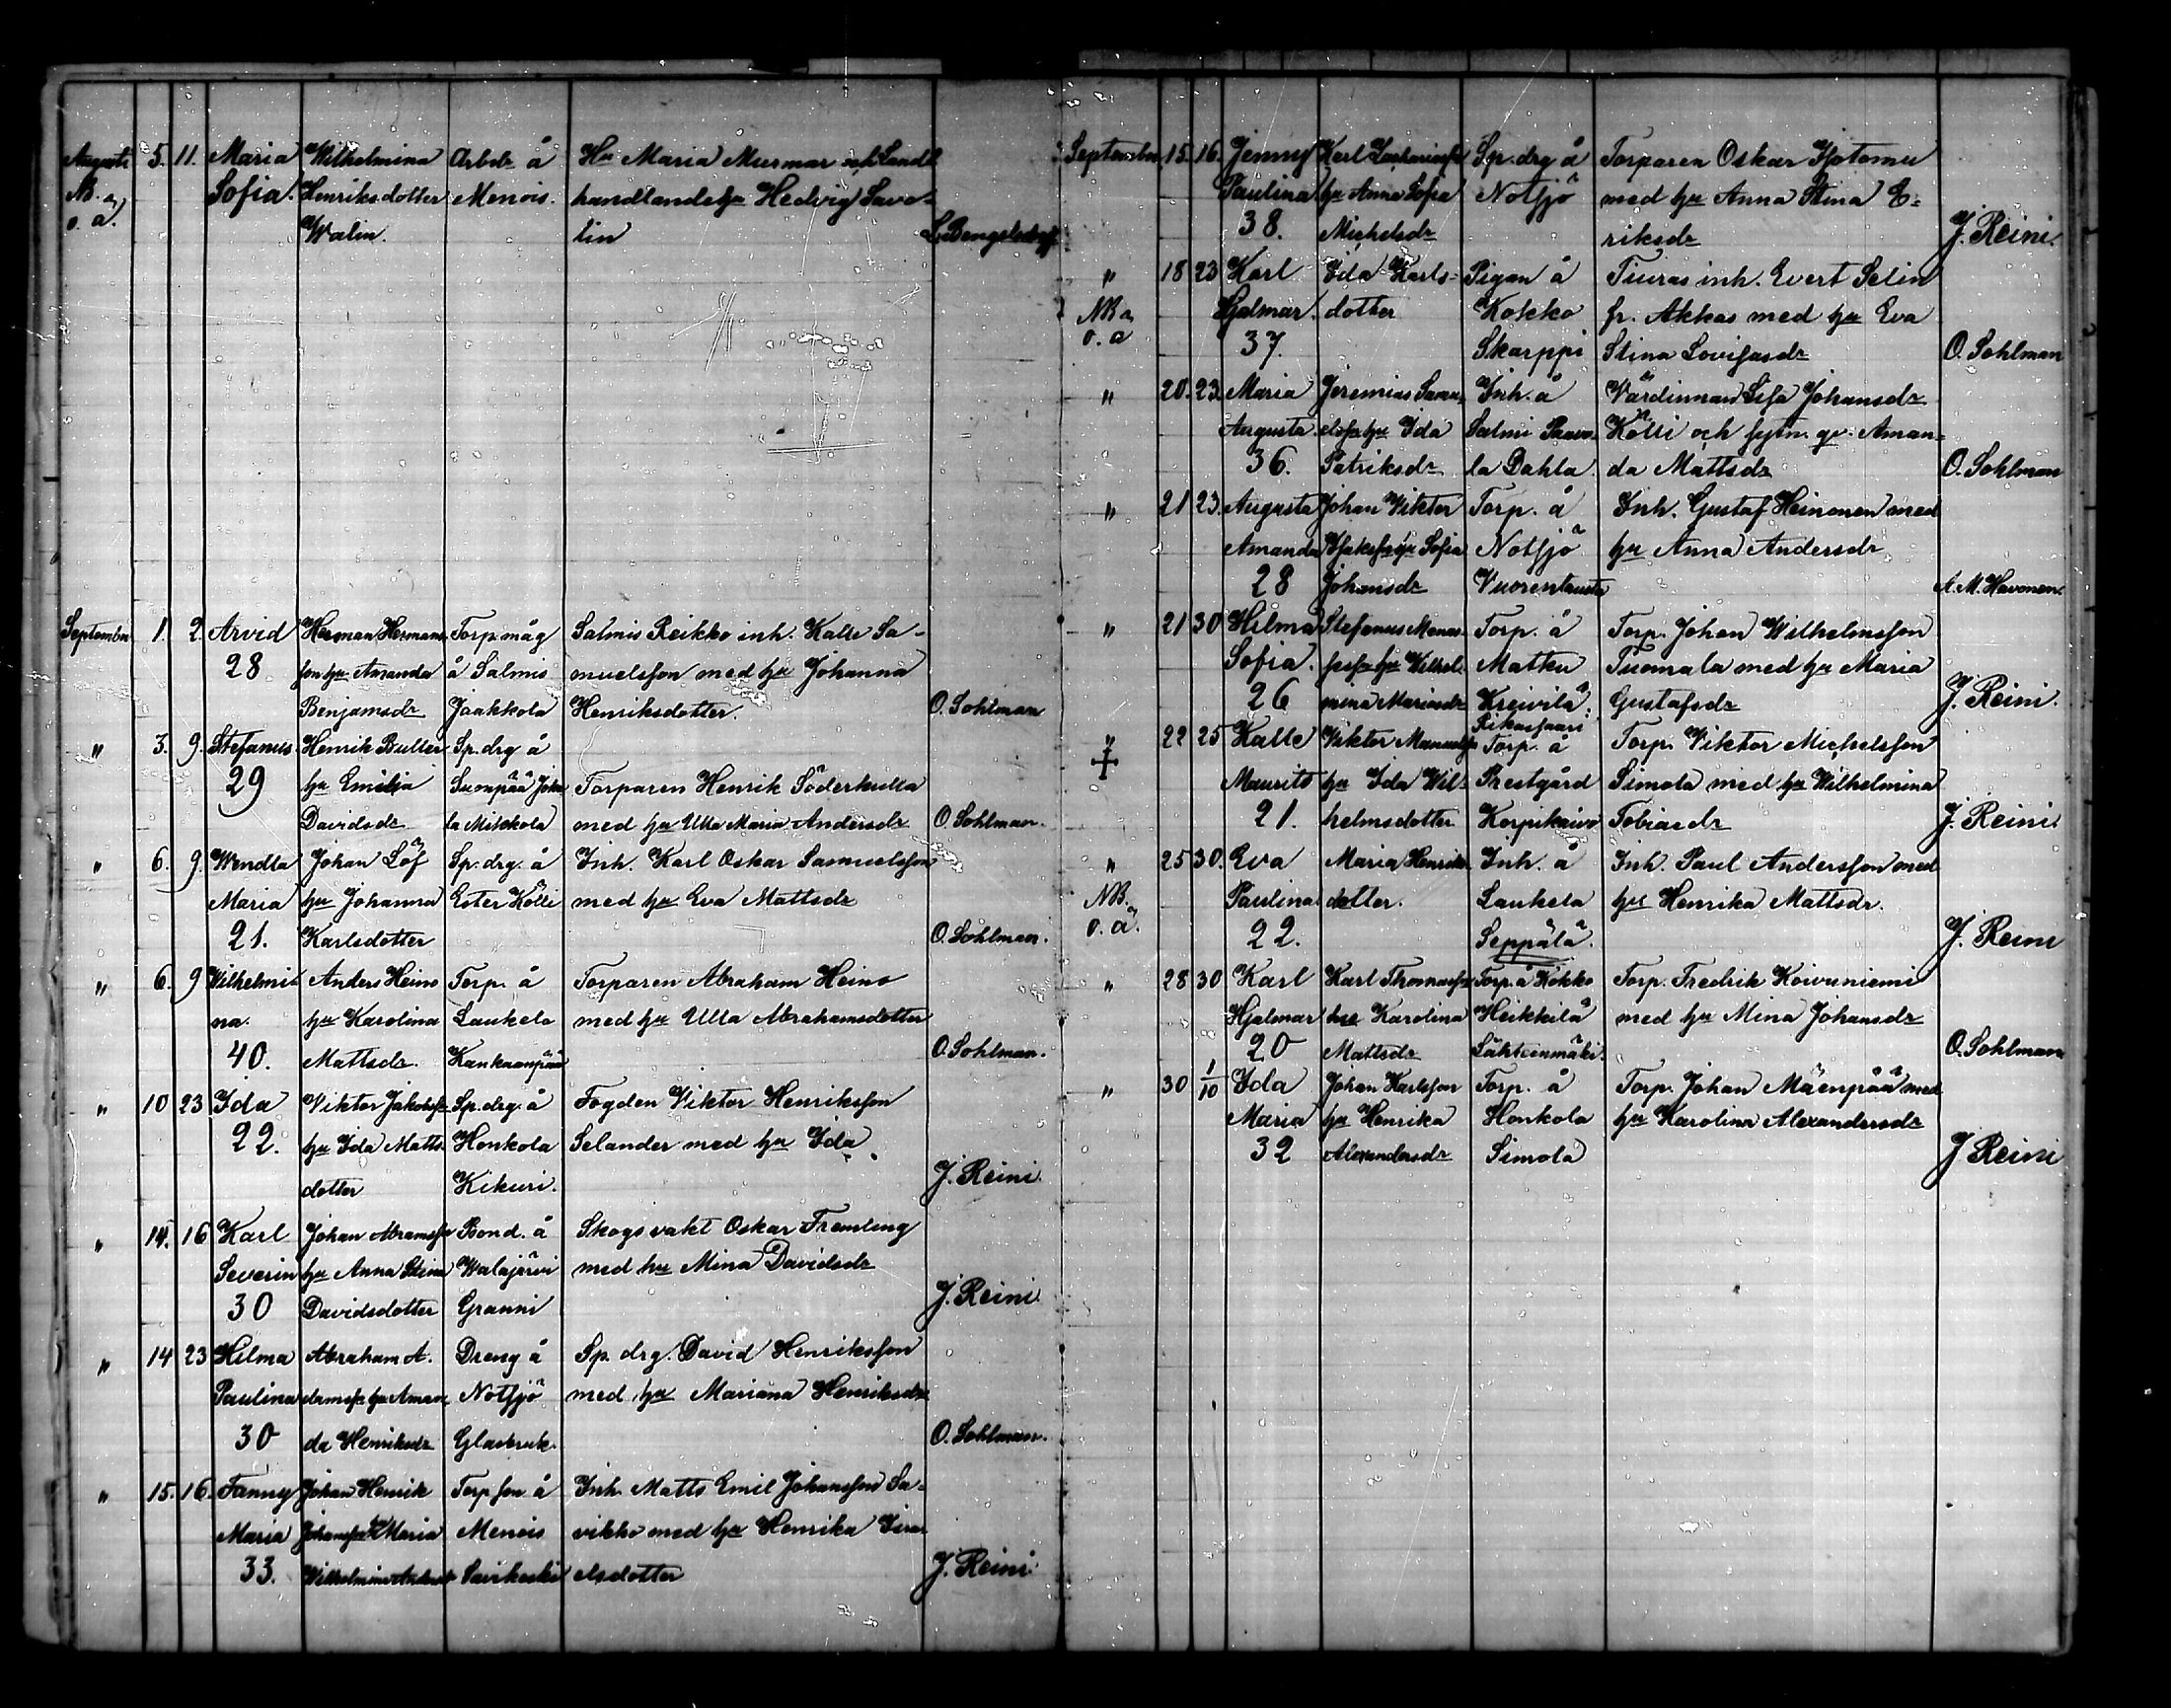 Augusti 5. 11. Maria Wilhelmina Arbdr å Hu Maria Murmar och Landt
NB. Sofia. Henriksdotter Menois. handlandehu Hedvig Savo-
o. ä. Walin. lin
September 1. 2. Arvid Herman Hermans Torp måg Salmis Reikko inh. Kalle Sa-
28 son hu Amanda å Salmis muelsson med hu Johanna
Benjamsdr Jaakkola Henriksdotter. O. Sohlman
" 3. 9. Stefanus Henrik Buller Sp. drg å
29 hu Emilia Suonpää Torparen Henrik Söderkulla
Davidsdr la Mikkola med hu Ulla Maria Andersdr O. Sohlman.
" 6. 9. Wendla Johan Löf Sp. drg. å Inh. Karl Oskar Samuelsson
Maria hu Johanna Ester Kölli med hu Eva Mattsdr
21. Karlsdotter O. Sohlman.
" 6. 9 Wilhelmi- Anders Heino Torp. å Torparen Abraham Heino
na. hu Karolina Laukela med hu Ulla Abrahamsdotter
40. Mattsdr Kankaanpää O. Sohlman.
" 10 23 Ida Viktor Jakobss Sp. drg. å Fogden Viktor Henriksson
22. hu Ida Matts- Honkola Selander med hu Ida
dotter Kikuri. J. Reini.
" 14. 16 Karl Johan Abramss Bond. å Skogsvakt Oskar Fremling
Severin hu Anna Stina Walajärvi med hu Mina Davidsdr
30 Davidsdotter Granni J. Reini.
" 14 23 Hilma Abraham A. Dreng å Sp. drg. David Henriksson
Paulina damss hu Aman Notsjö med hu Mariana Henriksdr
30 da Henriksdr Glasbruk. O. Sohlman.
" 15. 16. Fanny Johan Henrik Torp son å Inh. Matts Emil Johansson Sa-
Maria Johanss hu Maria Menois vikko med hu Henrika Isra-
33. Wilhelmina Savikoski elsdotter J. Reini
September 15. 16. Jenny Karl Zachariass Sp. drg å Torparen Oskar Isotomu
Paulina hu Anna Sofia Notsjö med hu Anna Stina E-
38. Michelsdr riksdr J. Reini.
" 18 23 Karl Ida Karls- Pigan å Tiuras inh. Evert Selin
NB. Hjalmar. dotter Kokko fr. Akkas med hu Eva
o. ä 37. Skarppi Stina Lovisasdr O. Sohlman
" 20. 23. Maria Jeremias Samu- Inh. å Värdinnan Lisa Johansdr
Augusta. elss hu Ida Salmi Paavo- Kölli och sytn. gv. Aman-
36. Patriksdr la Dahla da Mattsdr O. Sohlman
" 21 23. Augusta Johan Viktor Torp. å Inh. Gustaf Heinonen med
Amanda Isakss hu Sofia Notsjö hu Anna Andersdr
28 Johansdr Vuorentausta A. M. Havonen
" 21 30 Hilma Stefanus Manas- Torp. å Torp. Johan Wilhelmsson
Sofia. sess hu Wilhel- Matku Tuomala med hu Maria
26 mina Mariasdr Kreivilä. Gustafsdr J. Reini.
Rikassaari
" 22 25 Kalle Viktor Manuelss Torp. å Torp. Viktor Michelsson
Maurits hu Ida Wil- Prestgård Simola med hu Wilhelmina
21. helmsdotter Korpikaivo Tobiasdr J. Reini.
" 25 30. Eva Maria Henriks Inh. å Inh. Paul Andersson med
NB. Paulina dotter. Laukela hu Henrika Mattsdr.
o. ä. 22. Seppälä. J. Reini
" 28 30 Karl Karl Thomass Torp. å Kokko Torp. Fredrik Koivuniemi
Hjalmar hu Karolina Heikkilä med hu Mina Johansdr
20 Mattsdr Lähteenmäki. O. Sohlman
" 30 1/10 Ida Johan Karlsson Torp. å Torp. Johan Mäenpää med
Maria hu Henrika Honkola hu Karolina Alexandersdr
32 Alexandersdr Simola J Reini